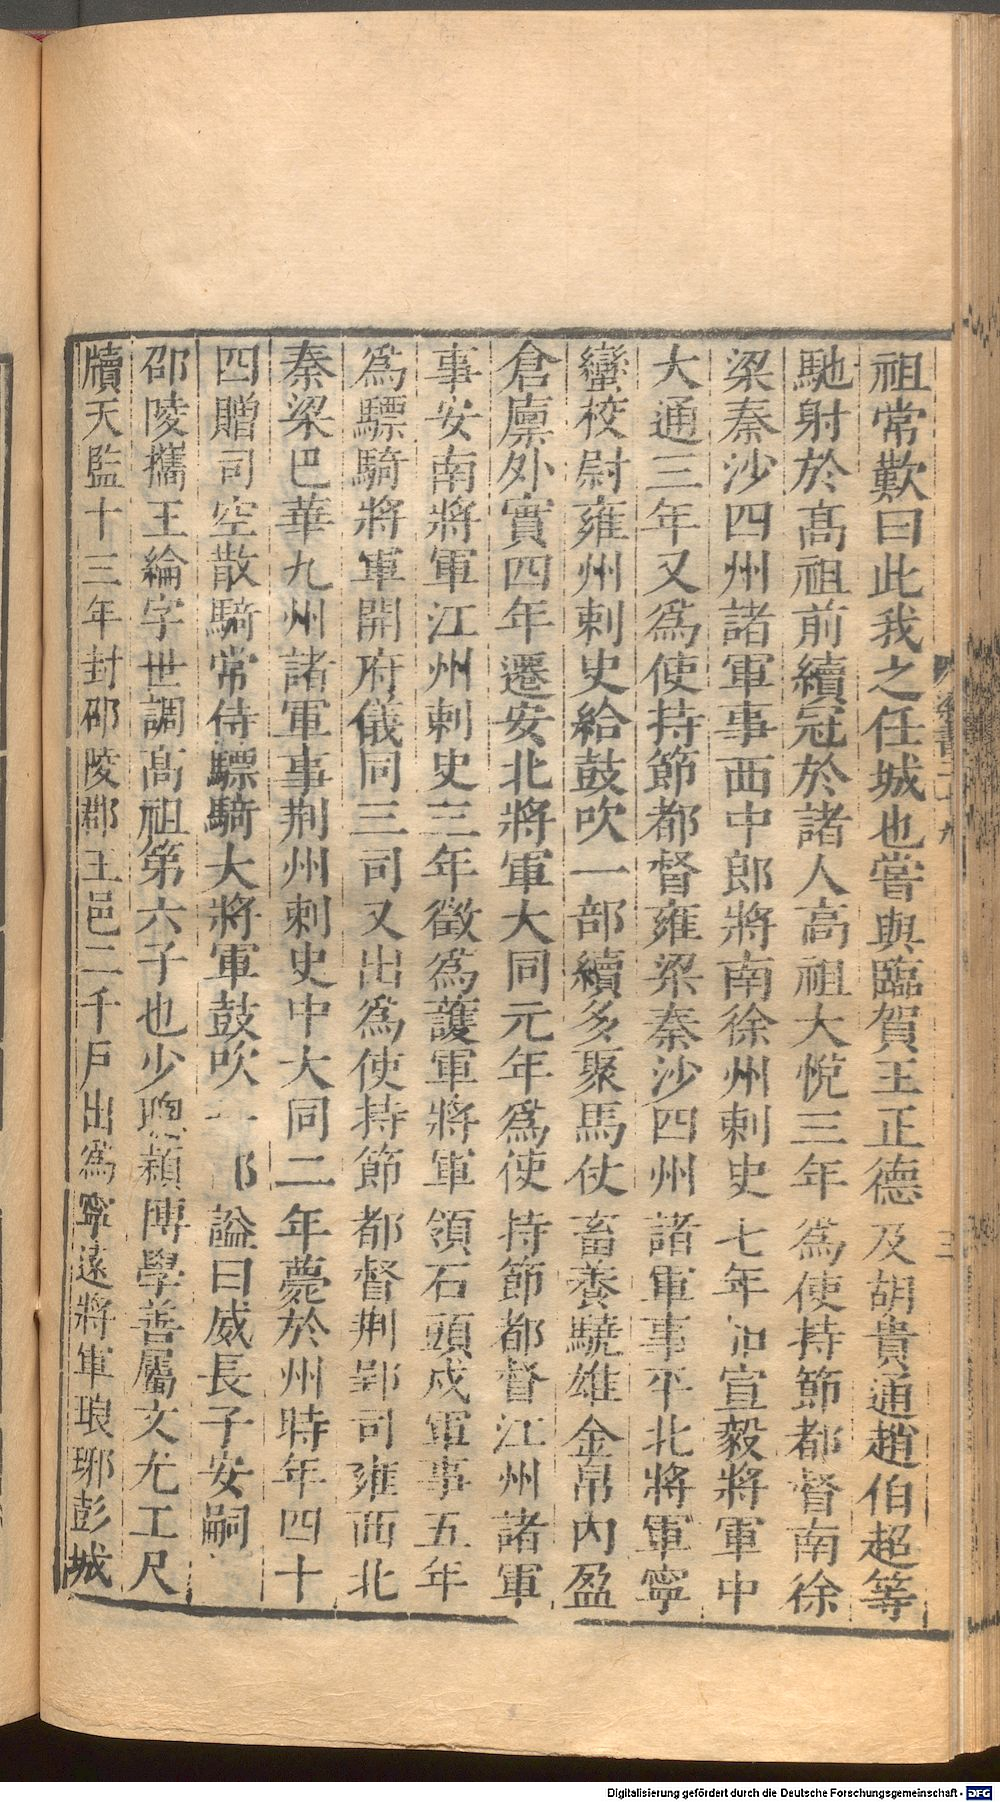 祖常歎曰此我之任城也嘗與臨賀王正德及胡貴通趙伯超等
馳射於高祖前續冠於諸人高祖大悅三年爲使持節都督南徐
梁秦沙四州諸軍事西中郎將南徐州刺史七年加宣毅將軍中
大通三年又爲使持節都督雍梁秦沙四州諸軍事平北將軍寧
蠻校尉雍州刺史給鼓吹一部續多聚馬仗畜養驍雄金帛內盈
倉廩外實四年遷安北將軍大同元年爲使持節都督江州諸軍
事安南將軍江州刺史三年徵爲護軍將軍領石頭戍軍事五年
爲驃騎將軍開府儀同三司又出爲使持節都督荆郢司雍西北
秦梁巴華九州諸軍事荆州刺史中大同二年薨於州時年四十
四贈司空散騎常侍驃騎大將軍鼓吹一部諡曰威長子安嗣
邵陵攜王綸字世調高祖第六子也少聰穎博學善屬文尤工尺
牘天監十三年封邵陵郡王邑二千戶出爲寧遠將軍琅琊彭城
梁書二十九
三
Digitalisierung gefördert durch die Deutsche Forschungsgemeinschaft - DFG